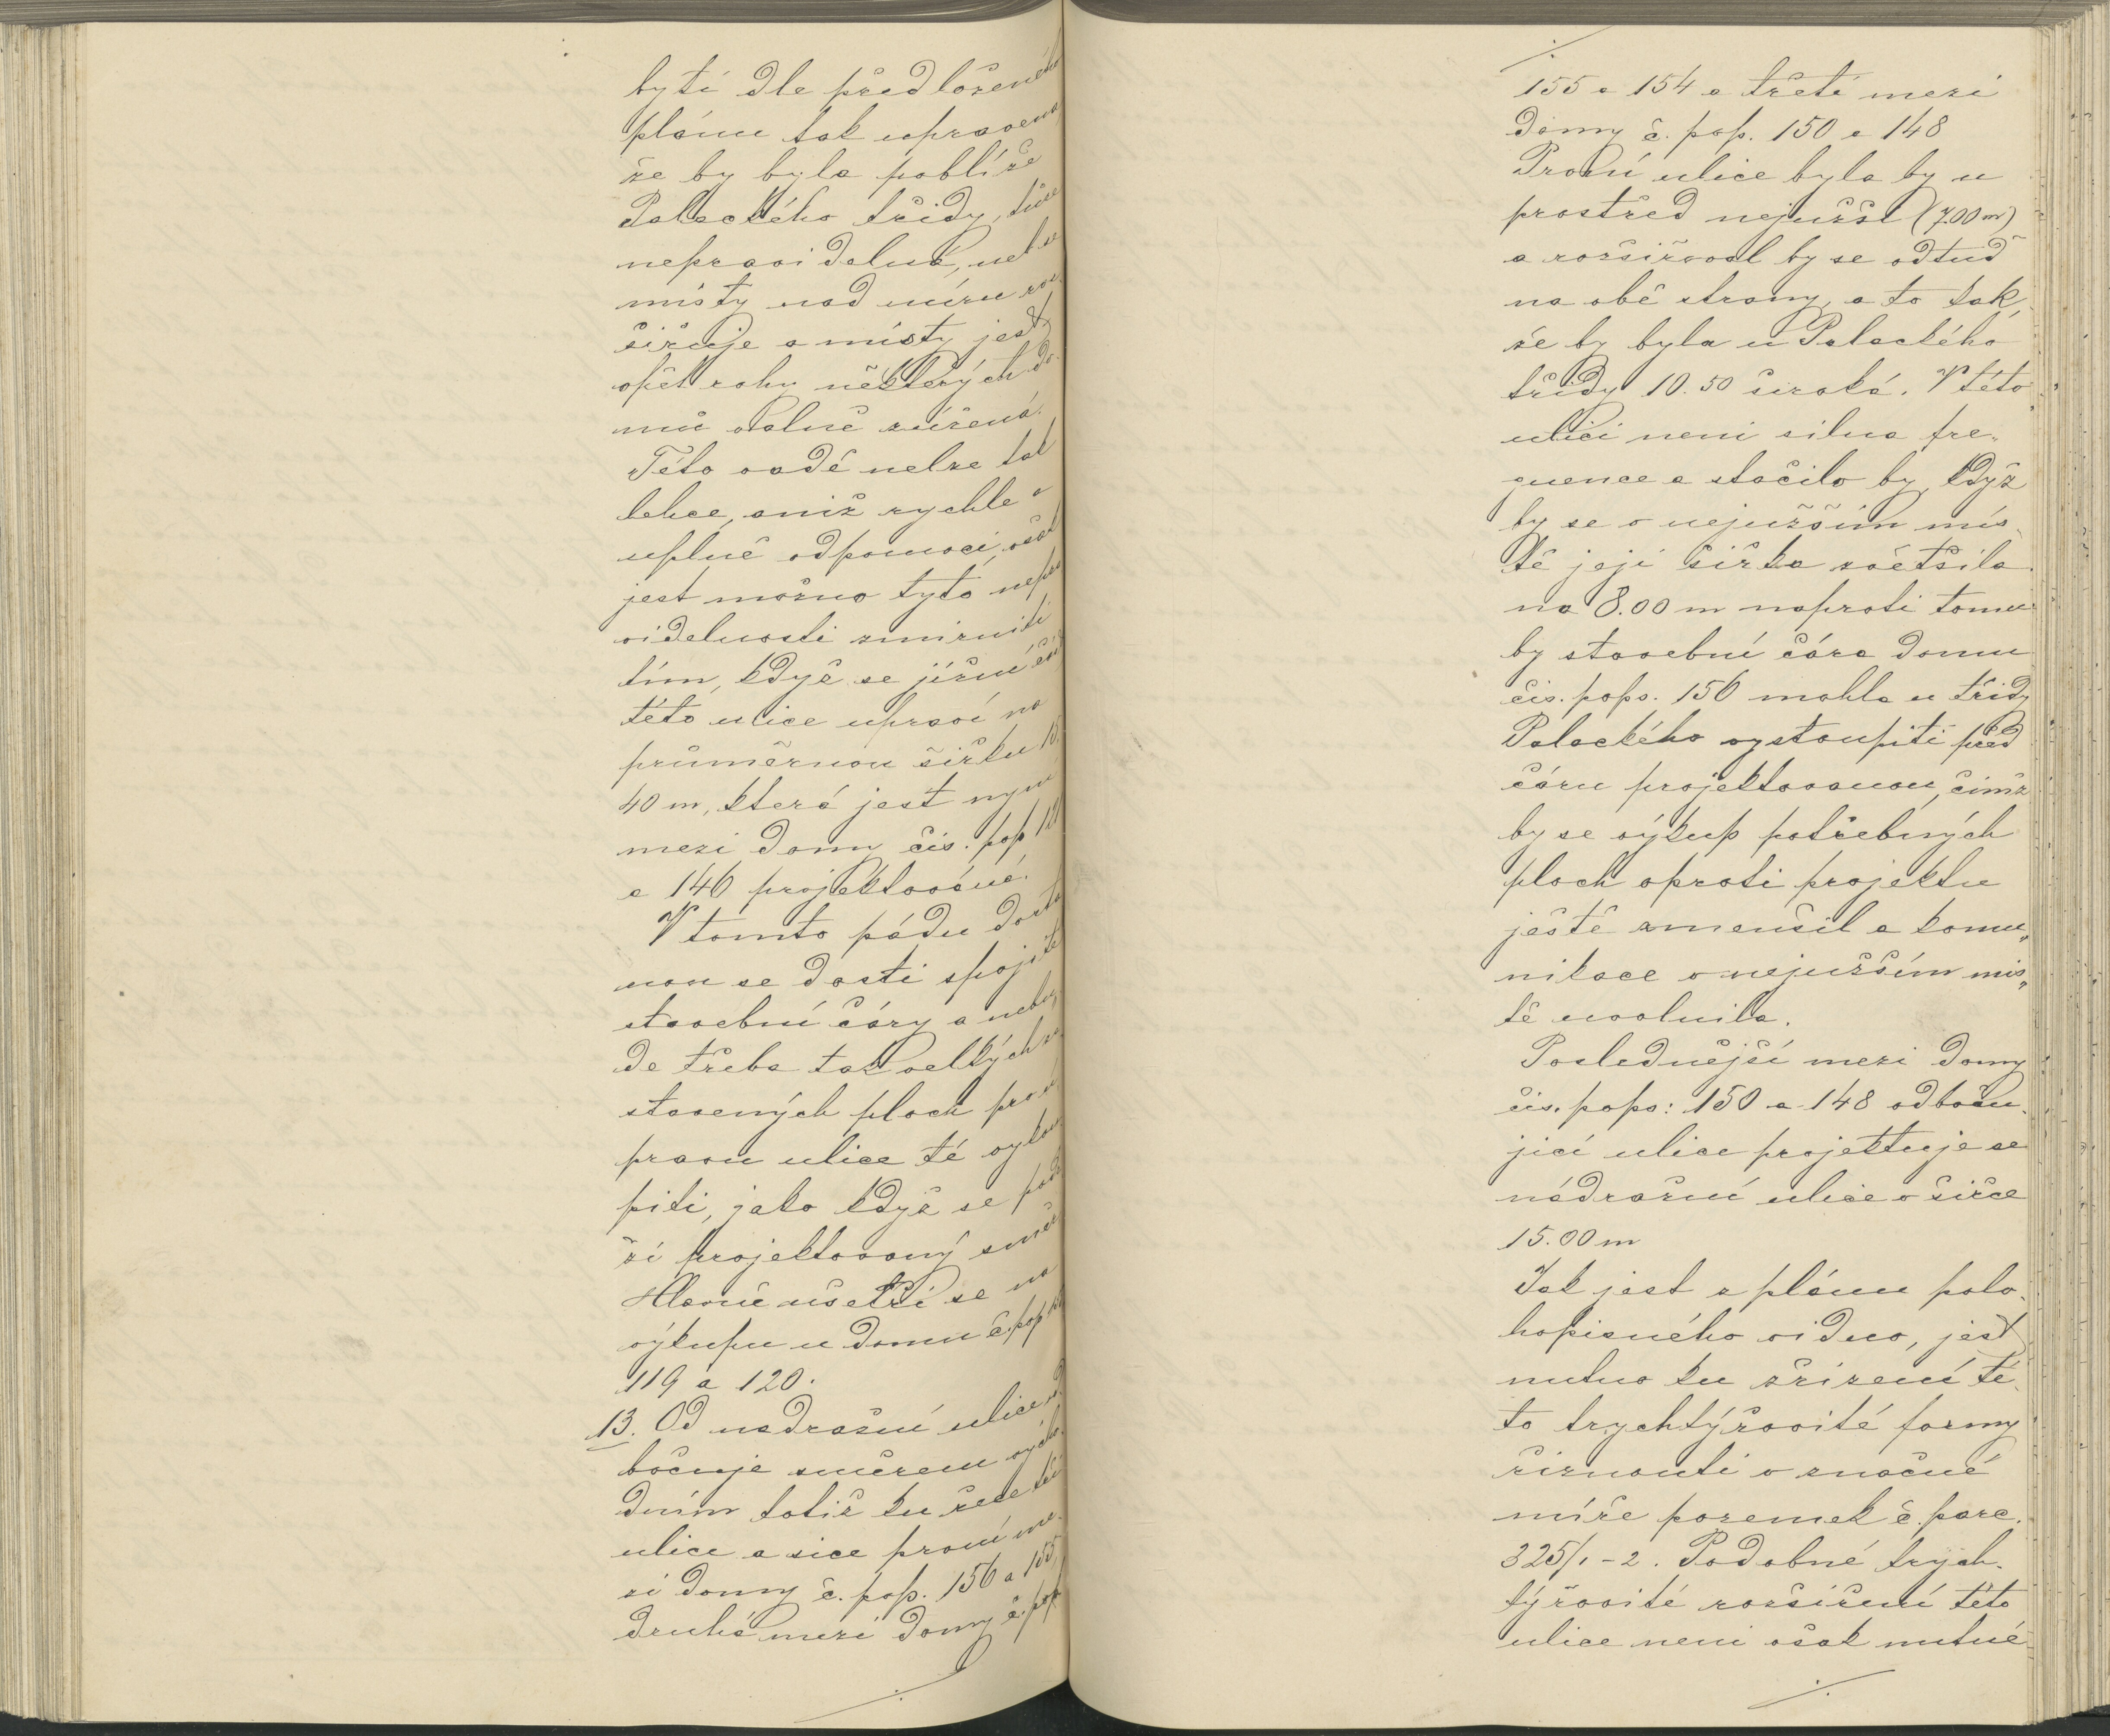 býti dle předloženého
plánu tak upravena
že by byla poblíže
Palackého třídy, túze
nepravidelná, neb se
místy nad míru roz
šiřuje a místy jest
opět rohy některých do-
mů valně zúžená.
Této vadě nelze tak
lehce, aniž rychle a
uplně odpomoci, však
jest možno tyto nepra
videlnosti zmírniti
tím, když se jižní část
této ulice upraví na
průměrnou šířku 10.
40 m, která jest nyní
mezi domy čís. pop. 121
a 146 projektována.
V tomto pádu dosta
nou se dosti spojité
stavební čáry a nebu
de třeba tak velkých za
stavených ploch pro ú
pravu ulice té vykou
piti, jako když se podr
ží projektovaný směr
Hlavně ušetří se na
výkupu u domu č. pop.
119 a 120.
13. Od nadražní ulice od
bočuje směrem vycho
dním totiž ku řece tři
ulice a sice první me-
zi domy č. pop. 156 a 155,
druhá mezi domy č. pop.
155 a 154 a třetí mezi
domy č. pop. 150 a 148
První ulice byla by u
prostřed nejužší (7.00 m)
a rozšiřoval by se odtud
na obě strany, a to tak,
že by byla u Palackého
třídy 10.50 široká. V této
ulici neni silna fre„
quence a stačilo by, když
by se v nejužším mís-
tě její šířka zvětšila
na 8.00 m naproti tomu
by stavební čára domu
čís. pops. 156 mohla u třídy
Palackého vystoupiti před
čáru projektovanou, čímž
by se výkup potřebných
ploch oproti projektu
ještě zmenšil a komu„
nikace v nejužším mís„
tě uvolnila.
Poslednější mezi domy
čís. pops: 150 a 148 odboču-
jící ulice projektuje se
nádražní ulice v šířce
15.00 m
Jak jest z plánu polo-
hopisného vidno, jest
nutno ku zřízení té-
to trychtýřovité formy
říznouti v značné
míře pozemek č. parc.
325/1-2. Podobné trych-
týřovité rozšíření této
ulice neni však nutné